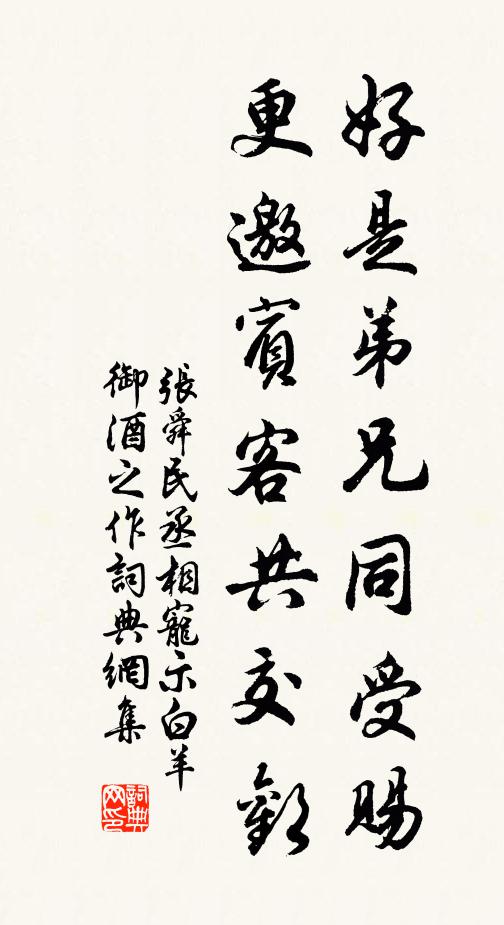 好是弟兄同受賜
更邀賓客共交歡
張舜民丞相寵示白羊
御酒之作詞典網集
詞典网印